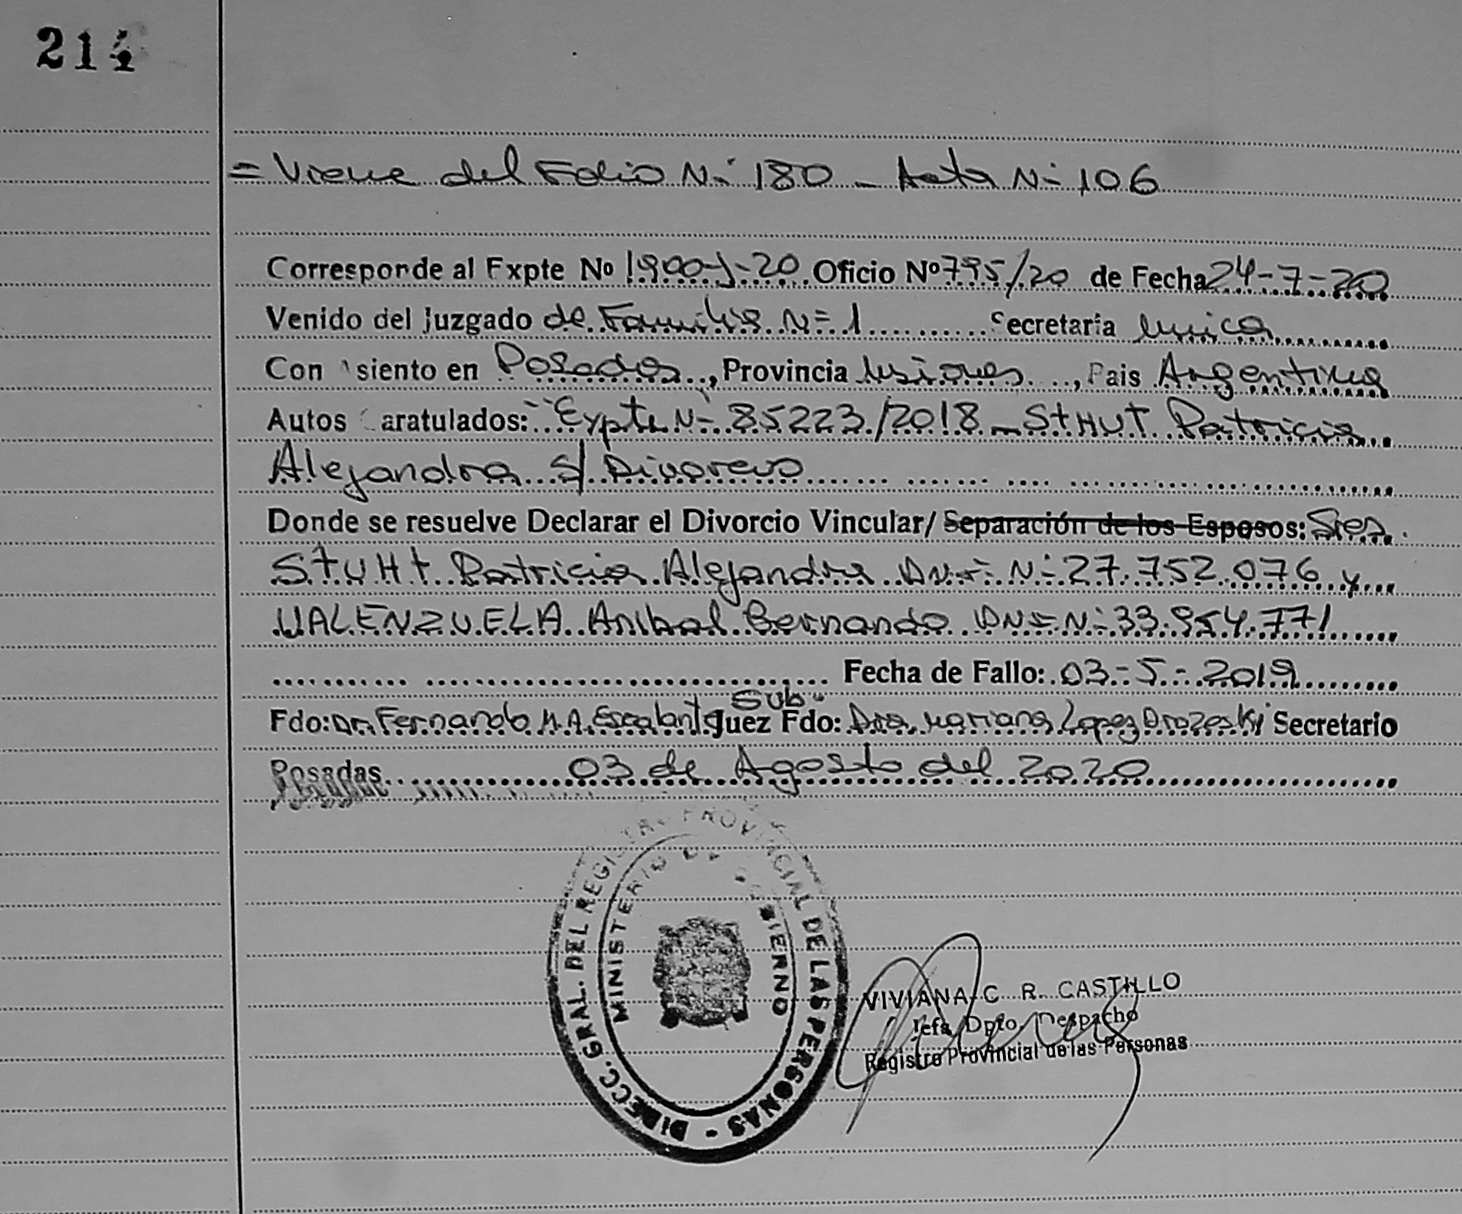 214
= Viene del Folio N: 180 - Acta N: 106
Corresponde al Expte Nº 1900-J-20 Oficio Nº 795/20 de Fecha 24-7-20
Venido del Juzgado de Familia N= 1 Secretaría única
Con asiento en Posadas, Provincia Misiones, Pais Argentina
Autos Caratulados: "Expte N: 85223/2018 - STHUT Patricia
Alejandra S/ Divorcio
Donde se resuelve Declarar el Divorcio Vincular/ Separación de los Esposos: Sres.
STUHT Patricia Alejandra DNI N: 27.752.076 y
VALENZUELA Anibal Bernardo DNI N: 33.954.771
Fecha de Fallo: 03-5-2019
Sub-
Fdo: Dr. Fernando M.A. Escalante Juez Fdo: Dra. Mariana Lopez Drozeski Secretario
Posadas 03 de Agosto del 2020
DIRECC. GRAL. DEL REGISTRO PROVINCIAL DE LAS PERSONAS -
MINISTERIO DE GOBIERNO
VIVIANA C. R. CASTILLO
Jefa Dpto. Despacho
Registro Provincial de las Personas